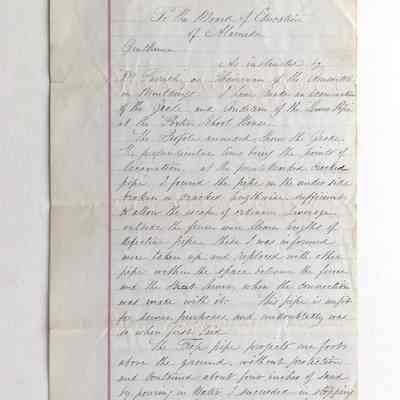 To the Board of Education
of Alameda
Gentlemen
As instructed by
Mr. as Chairman of the Committee
on Buildings I have made an examination
of the Grade and Condition of the Sewer Pipe
at the Porter School House.
The Profile annexed shows the grade.
The perpendicular lines being the points of
Excavation, at the point marked cracked
pipe I found the pipe on the under side
broken or cracked lengthwise sufficient
to allow the escape of ordinary sewerage
outside the fence were eleven lengths of
defective pipe these I was informed
were taken up and replaced with other
pipe within the space between the fence
and the Street Sewer, when the connection
was made with it. This pipe is unfit
for sewer purposes, and undoubtedly was
so when first laid.
The Trap pipe projects one foot
above the ground, without protection
and contained about four inches of sand
by pouring in water I succeeded in stopping